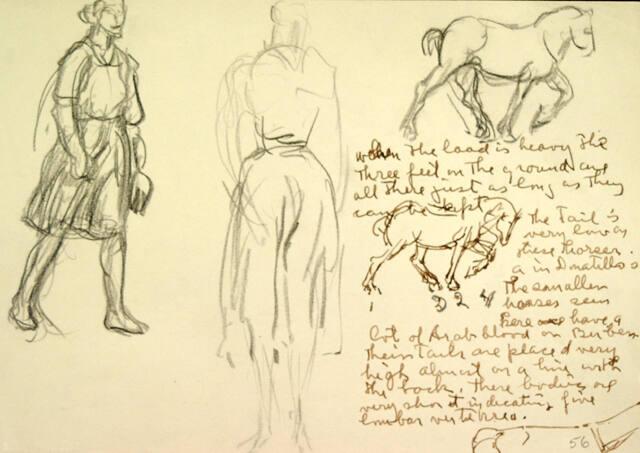 when the load is heavy the
three feet on the ground are
all there just as long as they
can be kept
The Tail is
very low on
these Horses.
as in Donatillos
The smaller
horses seen
here have a
lot of Arab blood or Berber
their Tails are placed very
high almost on a line with
the back. There bodies are
very short indicating five
lombar verterrea.
1 2 4
56